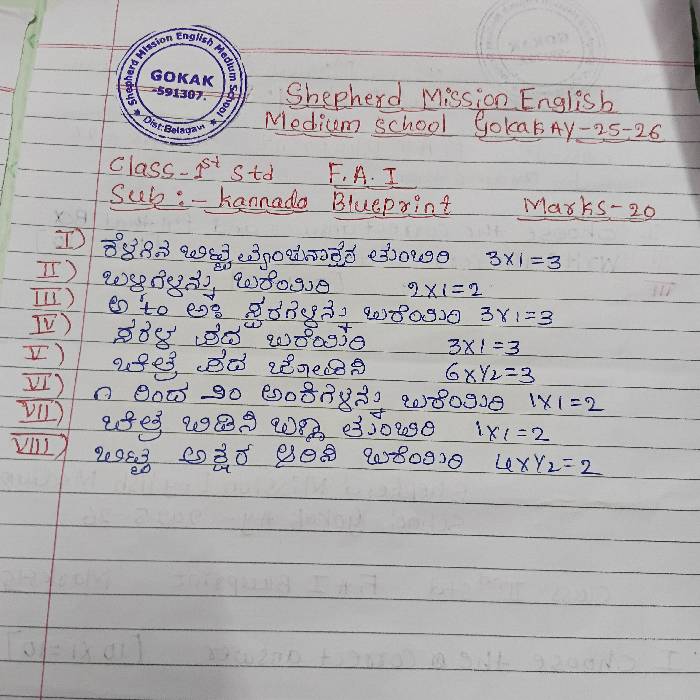 Shepherd Mission English Medium School
GOKAK
-591307.
Dist:Belagavi
Shepherd Mission English
Medium school Gokak AY-25-26
Class-1st Std F.A.I
Sub:- Kannada Blueprint Marks-20
I) ಕೆಳಗಿನ ಬಿಟ್ಟ ವ್ಯಂಜನಾಕ್ಷರ ತುಂಬಿರಿ 3x1=3
II) ಬಳ್ಳಿಗಳನ್ನು ಬರೆಯಿರಿ 2x1=2
III) ಅ to ಅಃ ಸ್ವರಗಳನ್ನು ಬರೆಯಿರಿ 3x1=3
IV) ಸರಳ ಪದ ಬರೆಯಿರಿ 3x1=3
V) ಚಿತ್ರ ಪದ ಜೋಡಿಸಿ 6x1/2=3
VI) ೧ ರಿಂದ ೨೦ ಅಂಕಿಗಳನ್ನು ಬರೆಯಿರಿ 1x1=2
VII) ಚಿತ್ರ ಬಿಡಿಸಿ ಬಣ್ಣ ತುಂಬಿರಿ 1x1=2
VIII) ಬಿಟ್ಟ ಅಕ್ಷರ ಆರಿಸಿ ಬರೆಯಿರಿ 4x1/2=2